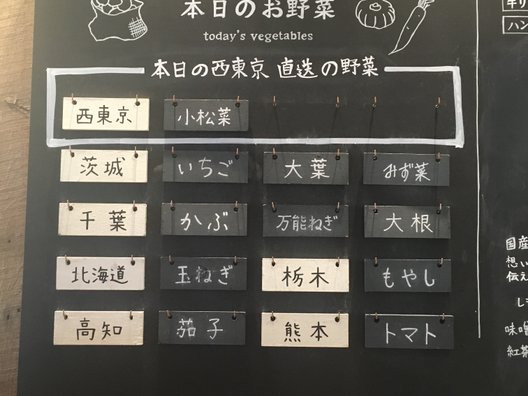 本日のお野菜
today's vegetables
本日の西東京 直送の野菜
西東京 小松菜
茨城 いちご 大葉 みず菜
千葉 かぶ 万能ねぎ 大根
北海道 玉ねぎ 栃木 もやし
高知 茄子 熊本 トマト
国産
想い
伝え
味噌
紅茶